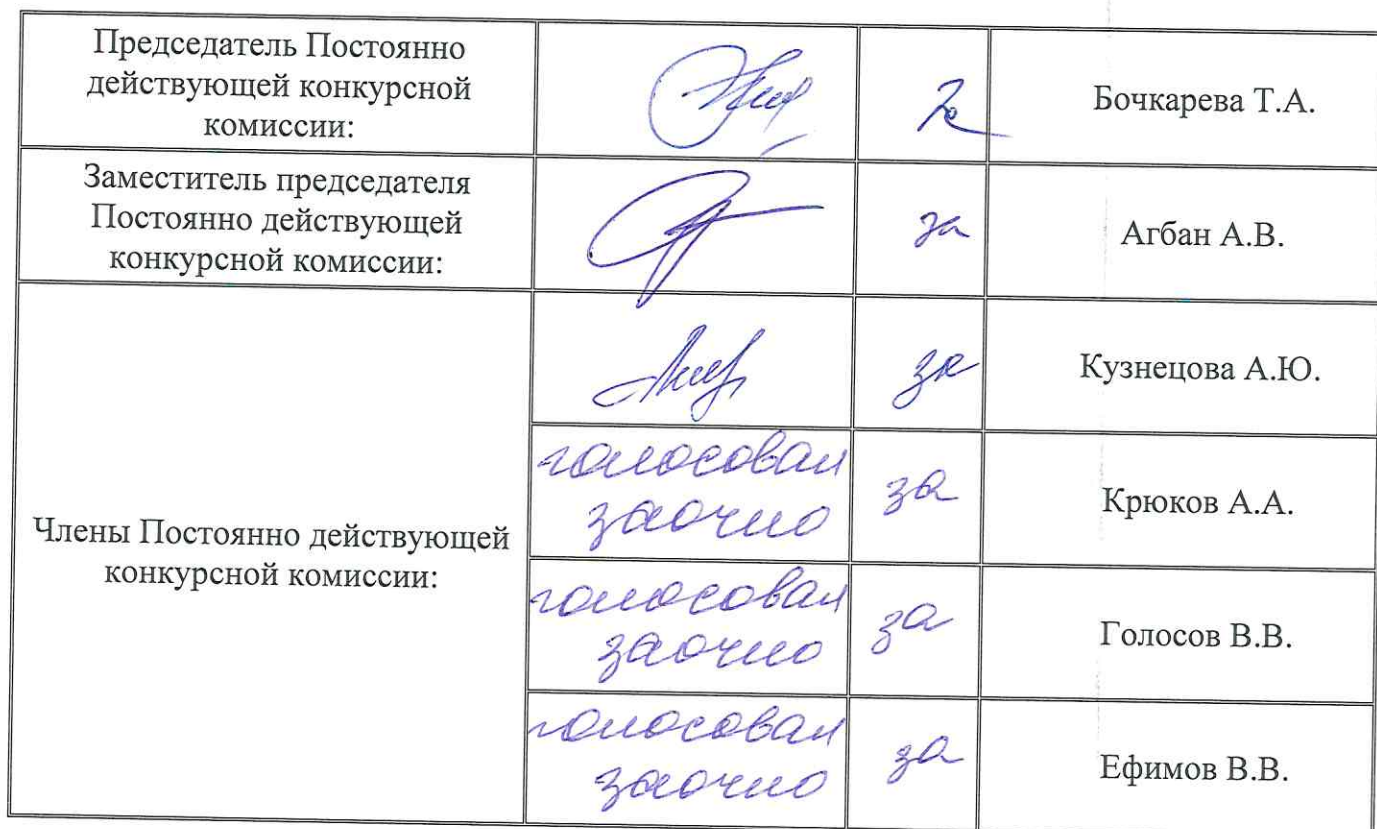 Председатель Постоянно
действующей конкурсной
комиссии:
Бочкарева Т.А.
Заместитель председателя
Постоянно действующей
конкурсной комиссии:
за
Агбан А.В.
Члены Постоянно действующей
конкурсной комиссии:
за
Кузнецова А.Ю.
голосовал
заочно
за
Крюков А.А.
голосовал
заочно
за
Голосов В.В.
голосовал
заочно
за
Ефимов В.В.